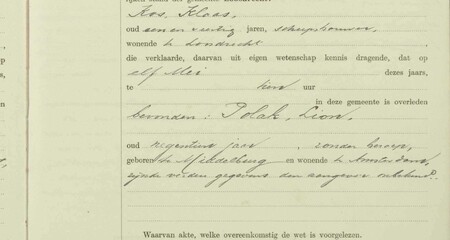 Kos, Klaas,
oud een en veertig jaren, scheepsbouwer,
wonende te Loosdrecht
die verklaarde, daarvan uit eigen wetenschap kennis dragende, dat op
elf Mei dezes jaars,
te tien uur
in deze gemeente is overleden
bevonden: Polak, Lion,
oud negentien jaar, zonder beroep,
geboren te Middelburg en wonende te Amsterdam,
zijnde verdere gegevens den aangever onbekend.
Waarvan akte, welke overeenkomstig de wet is voorgelezen.